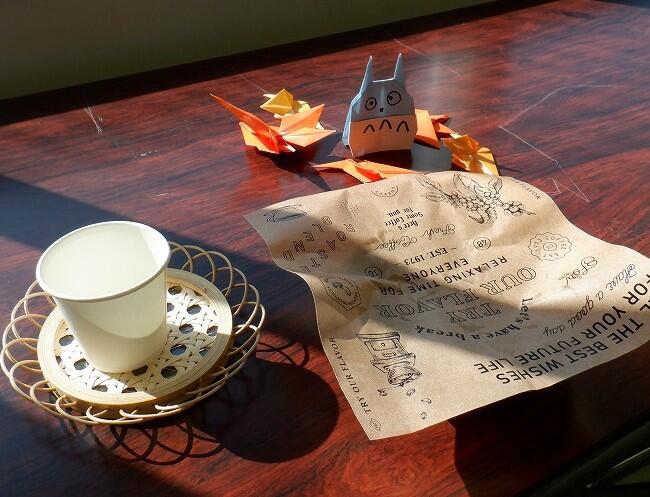 Here's
Some Coffee
for you.
Fresh Coffee
— EST. 1973
RELAXING TIME FOR
EVERYONE
TRY
OUR
FLAVOR
Let's have a break
Have a good day
THE BEST WISHES
FOR YOUR FUTURE LIFE
TRY OUR FLAVOR
ROAST
BLEND